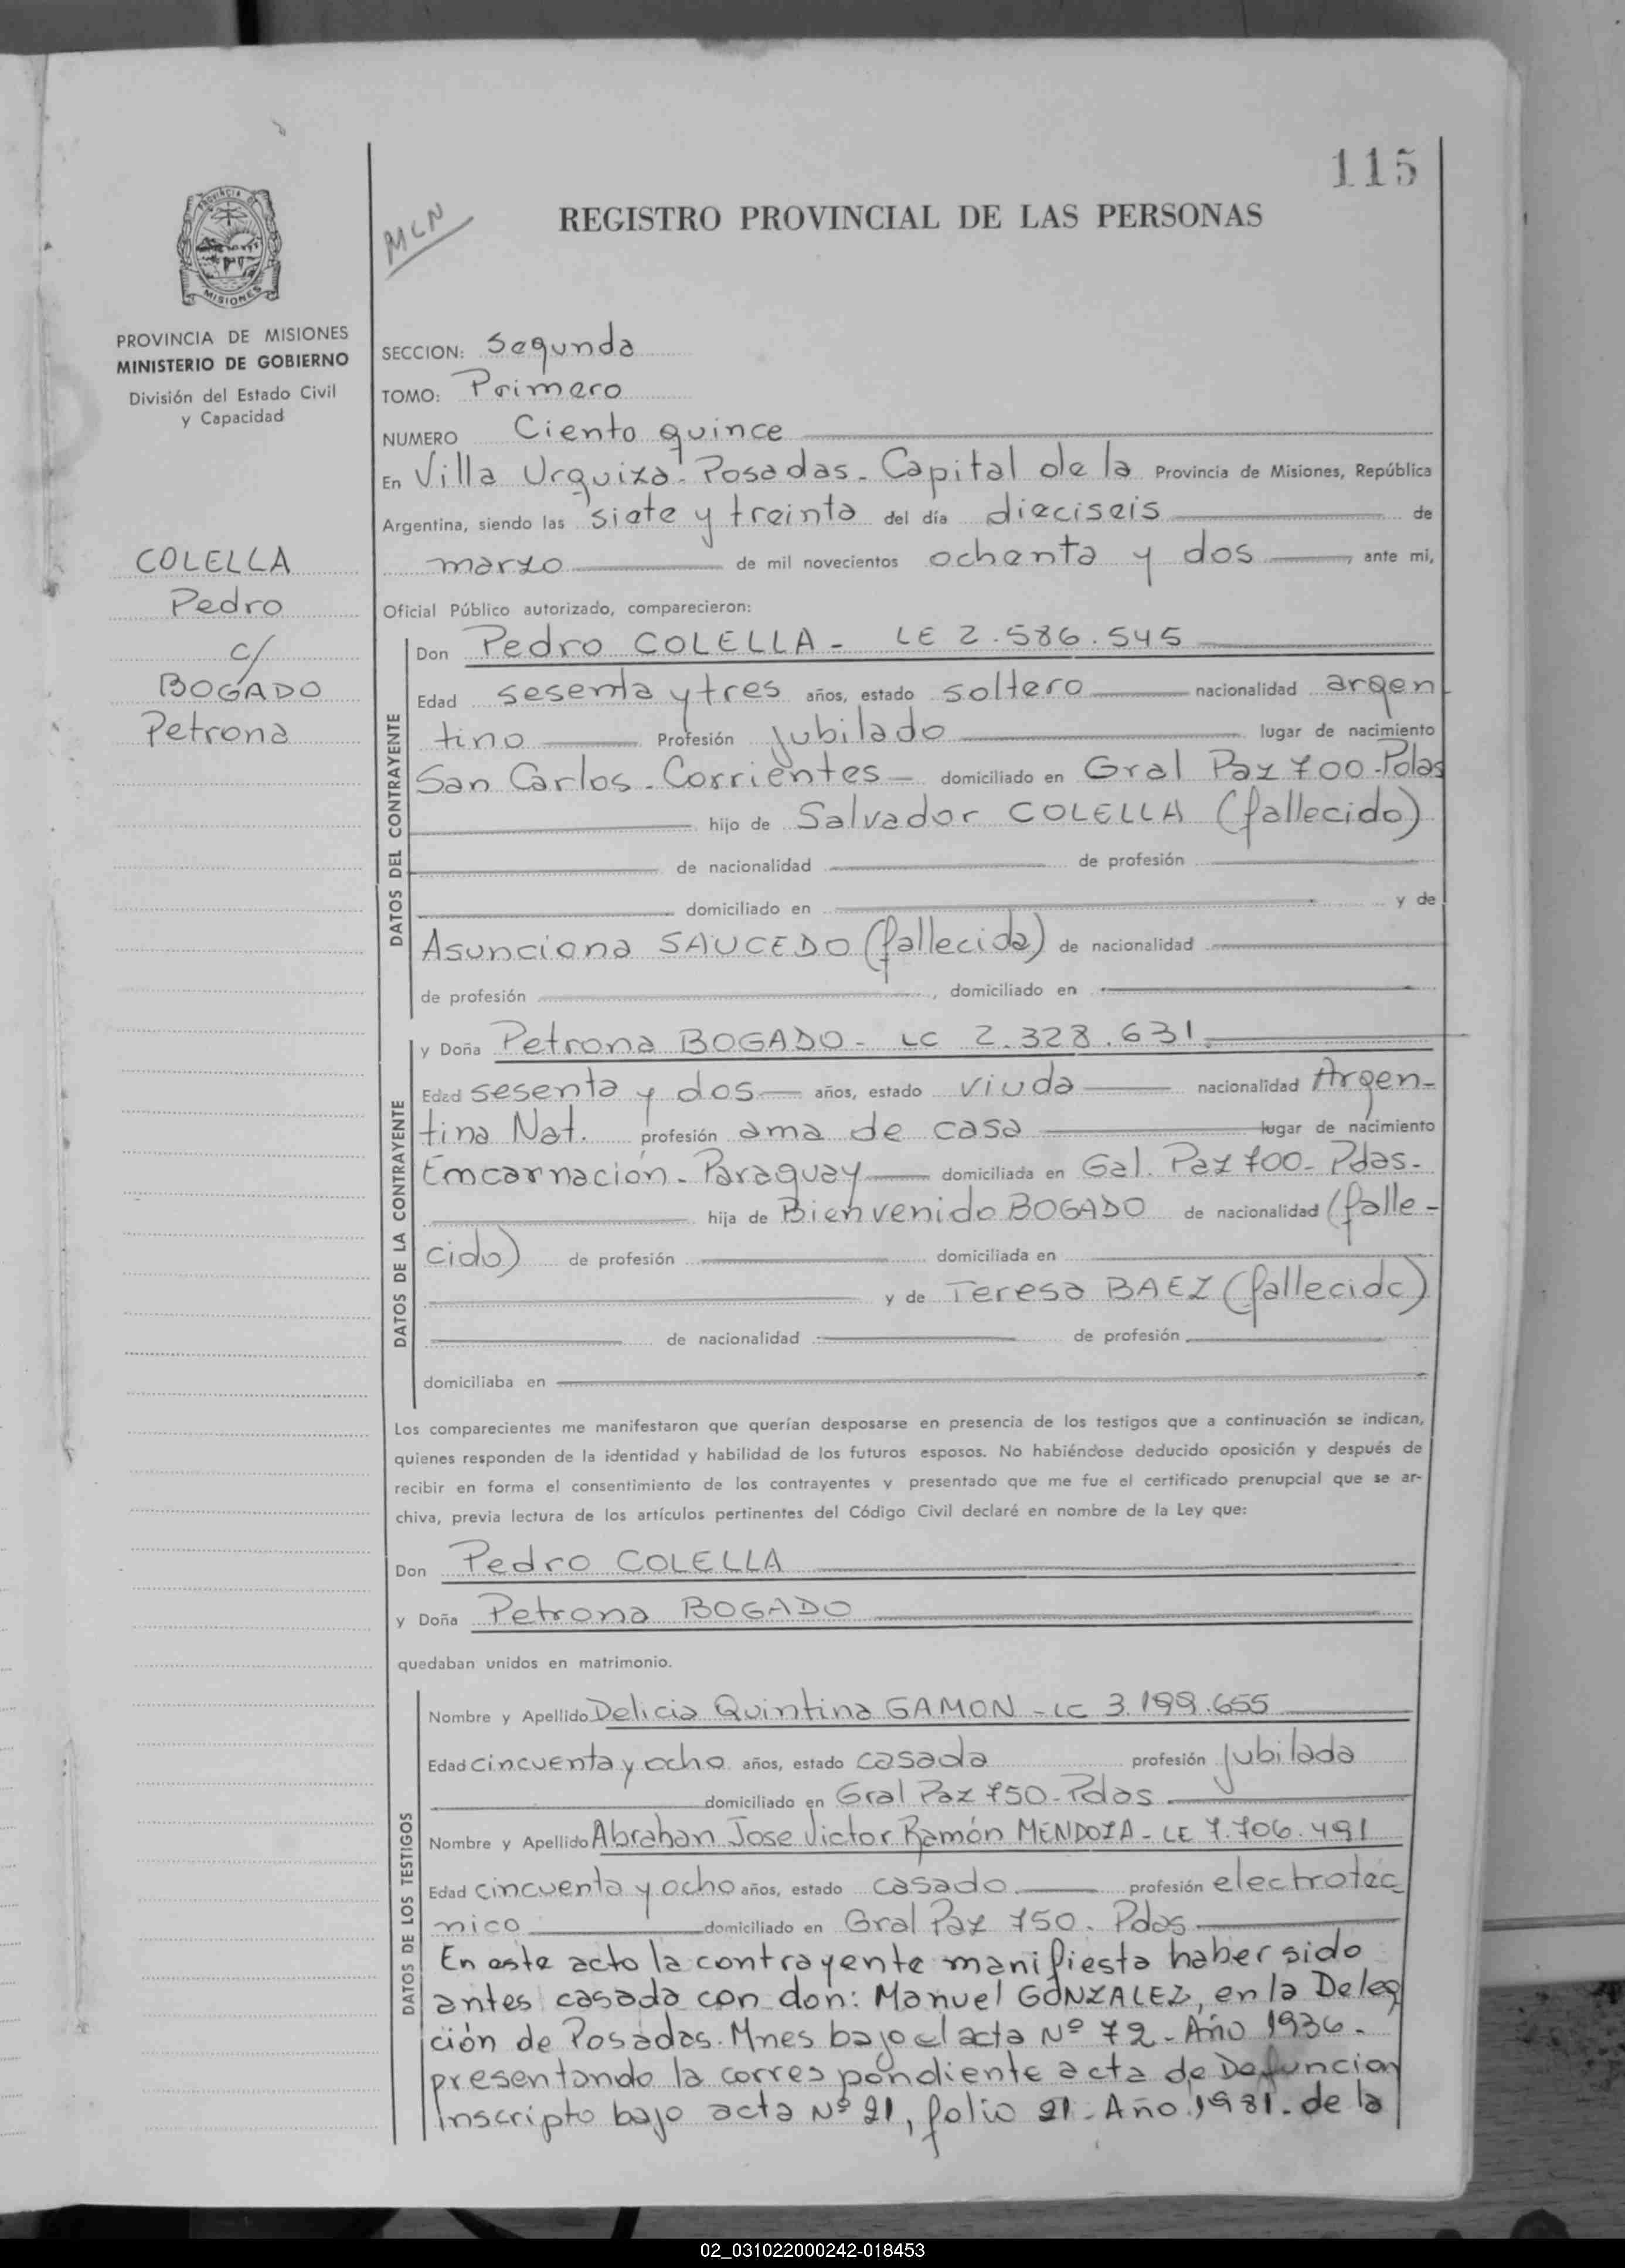 115
MCN
REGISTRO PROVINCIAL DE LAS PERSONAS
PROVINCIA
MISIONES
PROVINCIA DE MISIONES
MINISTERIO DE GOBIERNO
División del Estado Civil
y Capacidad
COLELLA
Pedro
c/
BOGADO
Petrona
SECCION: Segunda
TOMO: Primero
NUMERO Ciento quince
En Villa Urquiza. Posadas. Capital de la Provincia de Misiones, República
Argentina, siendo las siete y treinta del día dieciseis de
marzo de mil novecientos ochenta y dos, ante mi,
Oficial Público autorizado, comparecieron:
DATOS DEL CONTRAYENTE
Don Pedro COLELLA - LE 2.586.545
Edad sesenta y tres años, estado soltero nacionalidad argen
tino Profesión jubilado lugar de nacimiento
San Carlos. Corrientes - domiciliado en Gral Paz 700-Pdas
hijo de Salvador COLELLA (fallecido)
de nacionalidad de profesión
domiciliado en y de
Asunciona SAUCEDO (fallecida) de nacionalidad
de profesión , domiciliado en
DATOS DE LA CONTRAYENTE
y Doña Petrona BOGADO - LC 2.328.631.
Edad sesenta y dos años, estado viuda nacionalidad Argen-
tina Nat. profesión ama de casa lugar de nacimiento
Emcarnación - Paraguay domiciliada en Gal. Paz 700- Pdas.
hija de Bienvenido BOGADO de nacionalidad (falle-
cido) de profesión domiciliada en
y de Teresa BAEZ (fallecida)
de nacionalidad de profesión
domiciliaba en
Los comparecientes me manifestaron que querían desposarse en presencia de los testigos que a continuación se indican,
quienes responden de la identidad y habilidad de los futuros esposos. No habiéndose deducido oposición y después de
recibir en forma el consentimiento de los contrayentes y presentado que me fue el certificado prenupcial que se ar-
chiva, previa lectura de los artículos pertinentes del Código Civil declaré en nombre de la Ley que:
Don Pedro COLELLA
y Doña Petrona BOGADO
quedaban unidos en matrimonio.
DATOS DE LOS TESTIGOS
Nombre y Apellido Delicia Quintina GAMON - LC 3.199.655
Edad cincuenta y ocho años, estado casada profesión jubilada
domiciliado en Gral Paz 750-Pdas.
Nombre y Apellido Abrahan Jose Victor Ramón MENDOZA - LE 7.706.491
Edad cincuenta y ocho años, estado casado profesión electrotéc
nico domiciliado en Gral Paz 750. Pdas
En este acto la contrayente manifiesta haber sido
antes casada con don: Manuel GONZALEZ, en la Deleg
ción de Posadas. Mnes bajo el acta Nº 72 - Año 1936.
presentando la correspondiente acta de Defuncion
Inscripto bajo acta Nº 21, folio 21 - Año 1981. de la
02_031022000242-018453